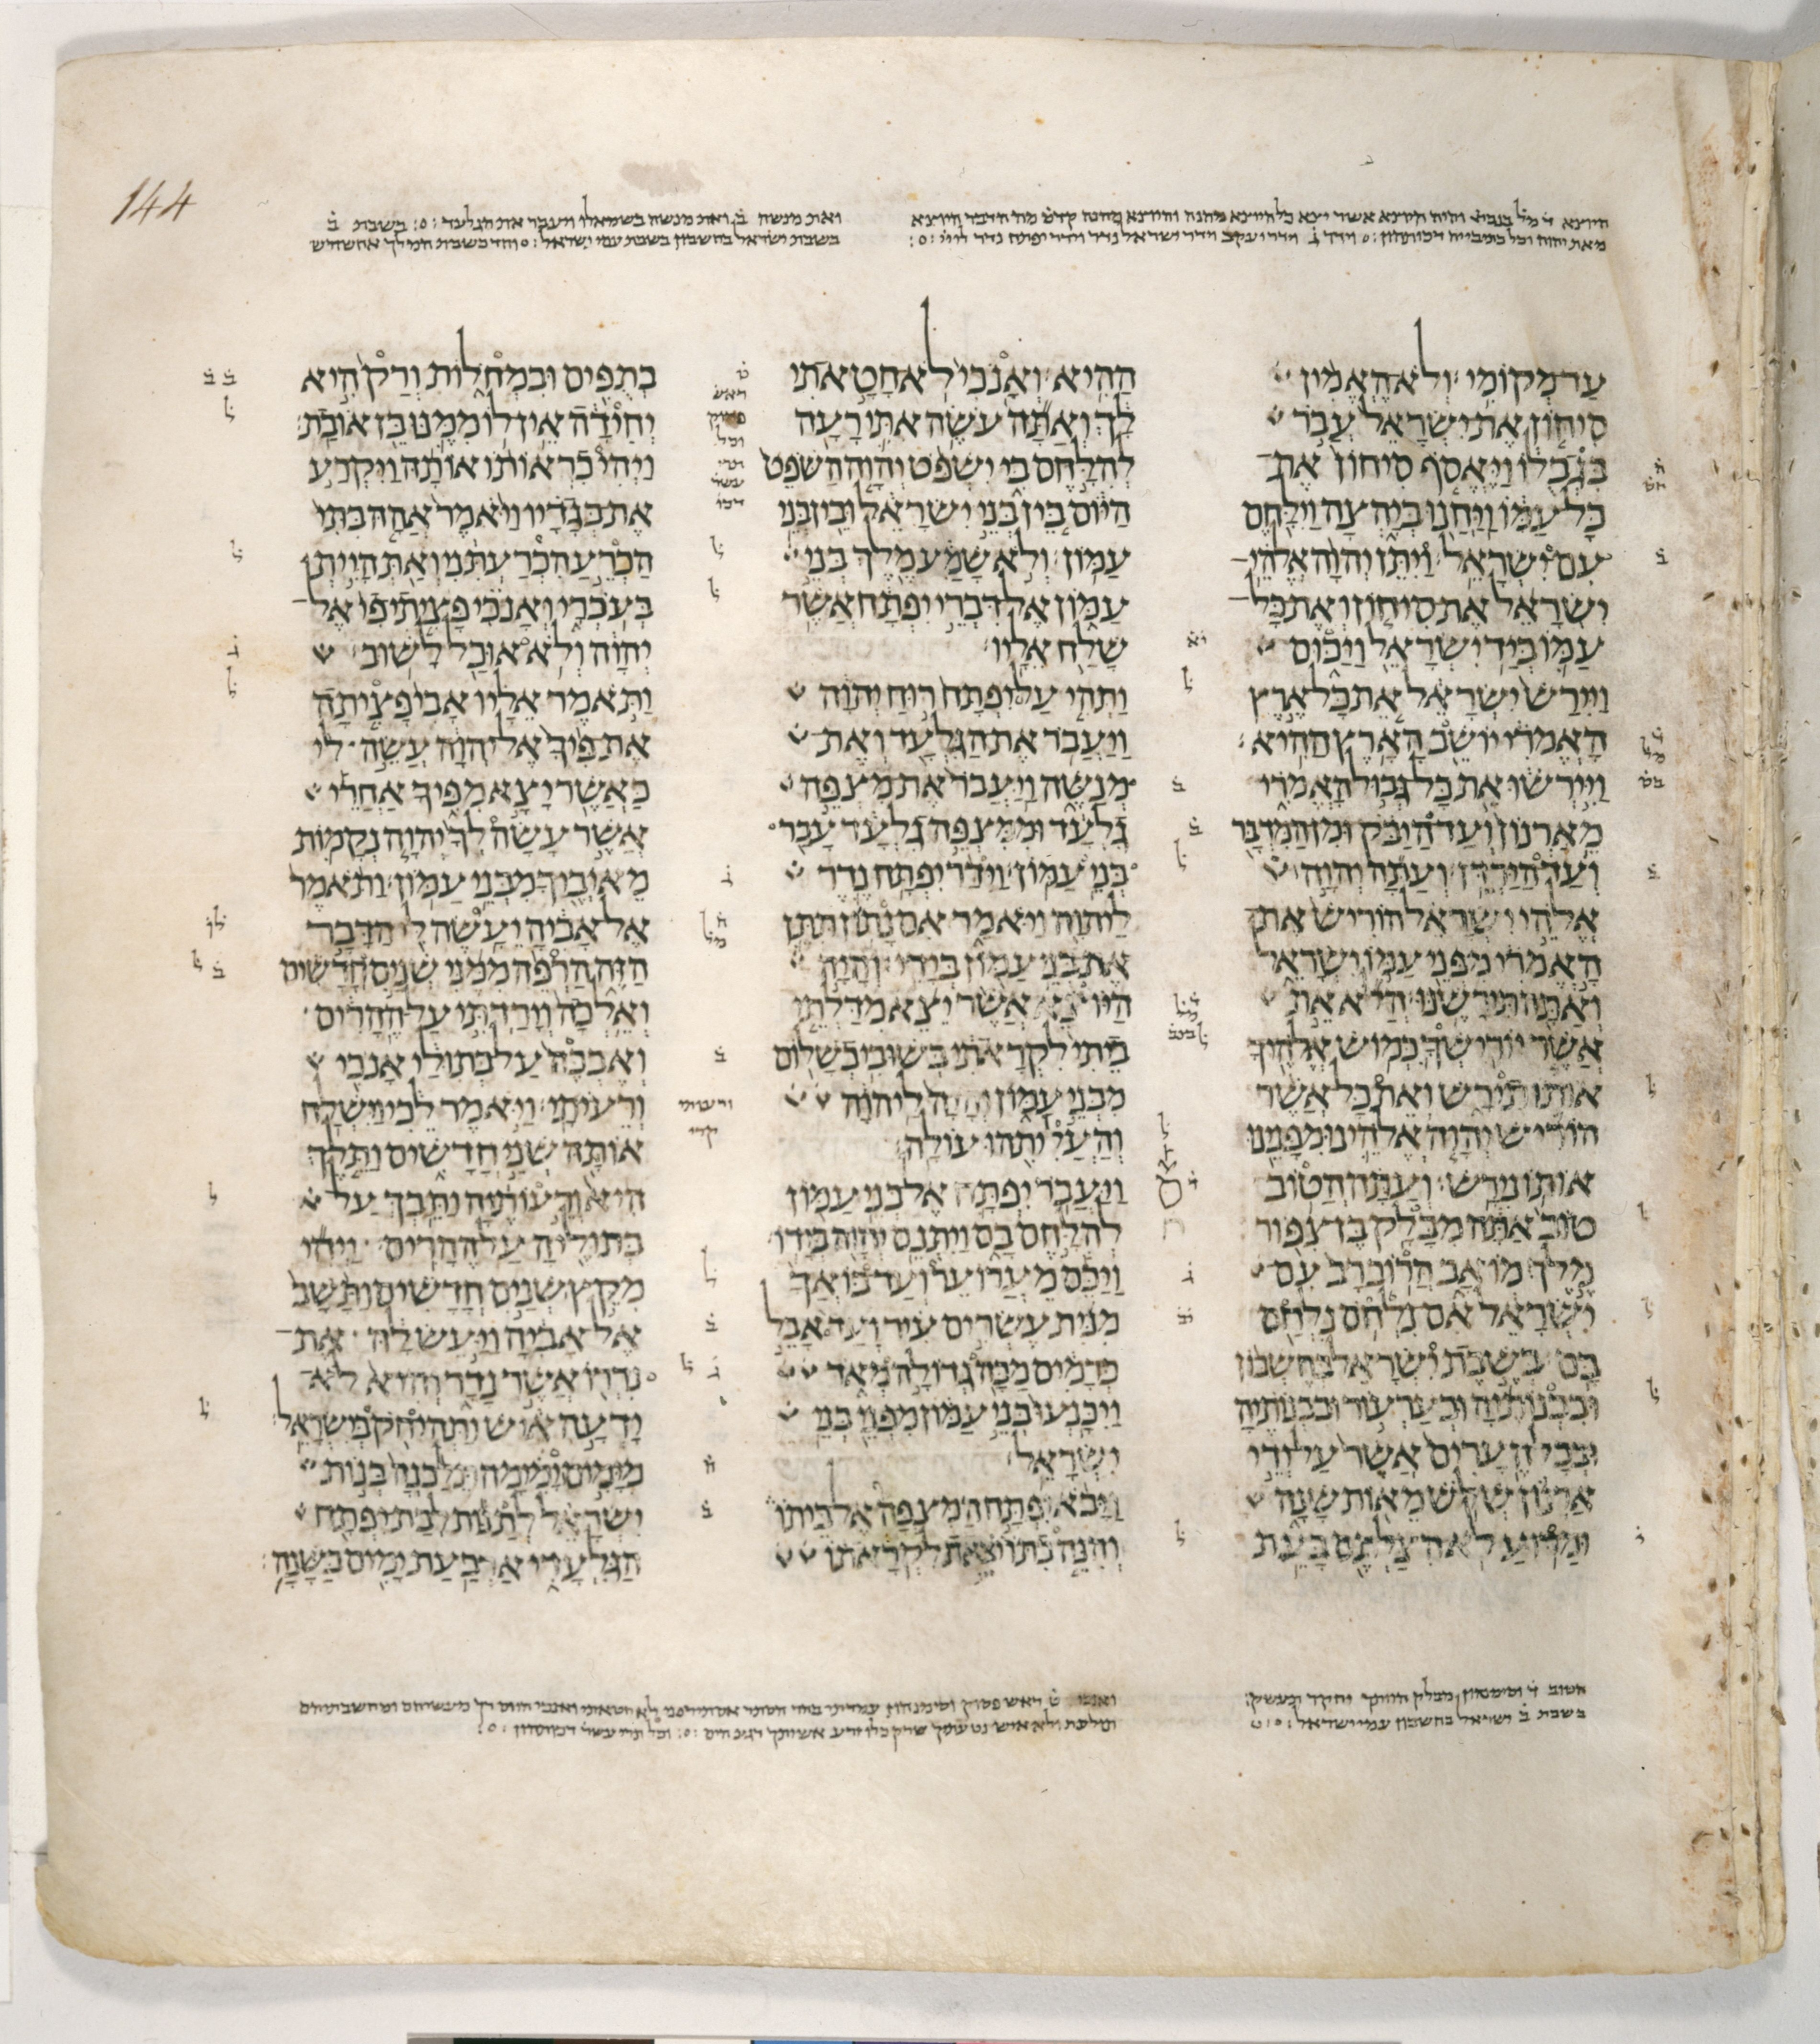 144
היוצא ד מל בנביא והיה היוצא אשר יצא כל היוצא מחנה והיוצא קדש מה הדבר היוצא
מאת יהוה וכל דכותהון וידר ג וידר יעקב וידר ישראל נדר וידר יפתח נדר ליי
ואת מנשה ב ואת מנשה בשמאלו ויעבר את הגלעד בשבת ב
בשבת ישראל בחשבון בשבת עמי ישראל וחד כשבת המלך אחשורש
עד מקומי ולא האמין
סיחון את ישראל עבר
בגבלו ויאסף סיחון את־
כל עמו ויחנו ביהצה וילחם
עם ישראל ויתן יהוה אלהי־
ישראל את סיחון ואת כל־
עמו ביד ישראל ויכום
ויירש ישראל את כל ארץ
האמרי יושב הארץ ההיא
ויירשו את כל גבול האמרי
מארנון ועד היבק ומן המדבר
ועד הירדן ועתה יהוה
אלהי ישראל הוריש את־
האמרי מפני עמו ישראל
ואתה תירשנו הלא את
אשר יורישך כמוש אלהיך
אותו תירש ואת כל אשר
הוריש יהוה אלהינו מפנינו
אותו נירש ועתה הטוב
טוב אתה מבלק בן צפור
מלך מואב הרוב רב עם
ישראל אם נלחם נלחם
בם בשבת ישראל בחשבון
ובבנותיה ובערעור ובבנותיה
ובכל הערים אשר על ידי
ארנון שלש מאות שנה
ומדוע לא הצלתם בעת
ההיא ואנכי לא חטאתי
לך ואתה עשה אתי רעה
להלחם בי ישפט יהוה השפט
היום בין בני ישראל ובין בני
עמון ולא שמע מלך בני
עמון אל דברי יפתח אשר
שלח אליו
ותהי על יפתח רוח יהוה
ויעבר את הגלעד ואת־
מנשה ויעבר את מצפה
גלעד וממצפה גלעד עבר
בני עמון וידר יפתח נדר
ליהוה ויאמר אם נתון תתן
את בני עמון בידי והיה
היוצא אשר יצא מדלתי
ביתי לקראתי בשובי בשלום
מבני עמון והיה ליהוה
והעליתהו עולה
ויעבר יפתח אל בני עמון
להלחם בם ויתנם יהוה בידו
ויכם מערוער ועד בואך
מנית עשרים עיר ועד אבל
כרמים מכה גדולה מאד
ויכנעו בני עמון מפני בני
ישראל
ויבא יפתח המצפה אל ביתו
והנה בתו יצאת לקראתו
בתפים ובמחלות ורק היא
יחידה אין לו ממנו בן או בת
ויהי כראותו אותה ויקרע
את בגדיו ויאמר אהה בתי
הכרע הכרעתני ואת היית
בעכרי ואנכי פציתי פי אל־
יהוה ולא אוכל לשוב
ותאמר אליו אבי פציתה
את פיך אל יהוה עשה לי
כאשר יצא מפיך אחרי
אשר עשה לך יהוה נקמות
מאיביך מבני עמון ותאמר
אל אביה יעשה לי הדבר
הזה הרפה ממני שנים חדשים
ואלכה וירדתי על ההרים
ואבכה על בתולי אנכי
ורעיתי ויאמר לכי וישלח
אותה שני חדשים ותלך
היא ורעותיה ותבך על
בתוליה על ההרים ויהי
מקץ שנים חדשים ותשב
אל אביה ויעש לה את־
נדרו אשר נדר והיא לא־
ידעה איש ותהי חק בישראל
מימים ימימה תלכנה בנות
ישראל לתנות לבת יפתח
הגלעדי ארבעת ימים בשנה
הטוב ד וסימנהון מבלק
בשבת ב ישראל בחשבון עמי ישראל
ואנכי ט ראש פסוק וסימנהון עמדתי לא חטאתי ואנכי